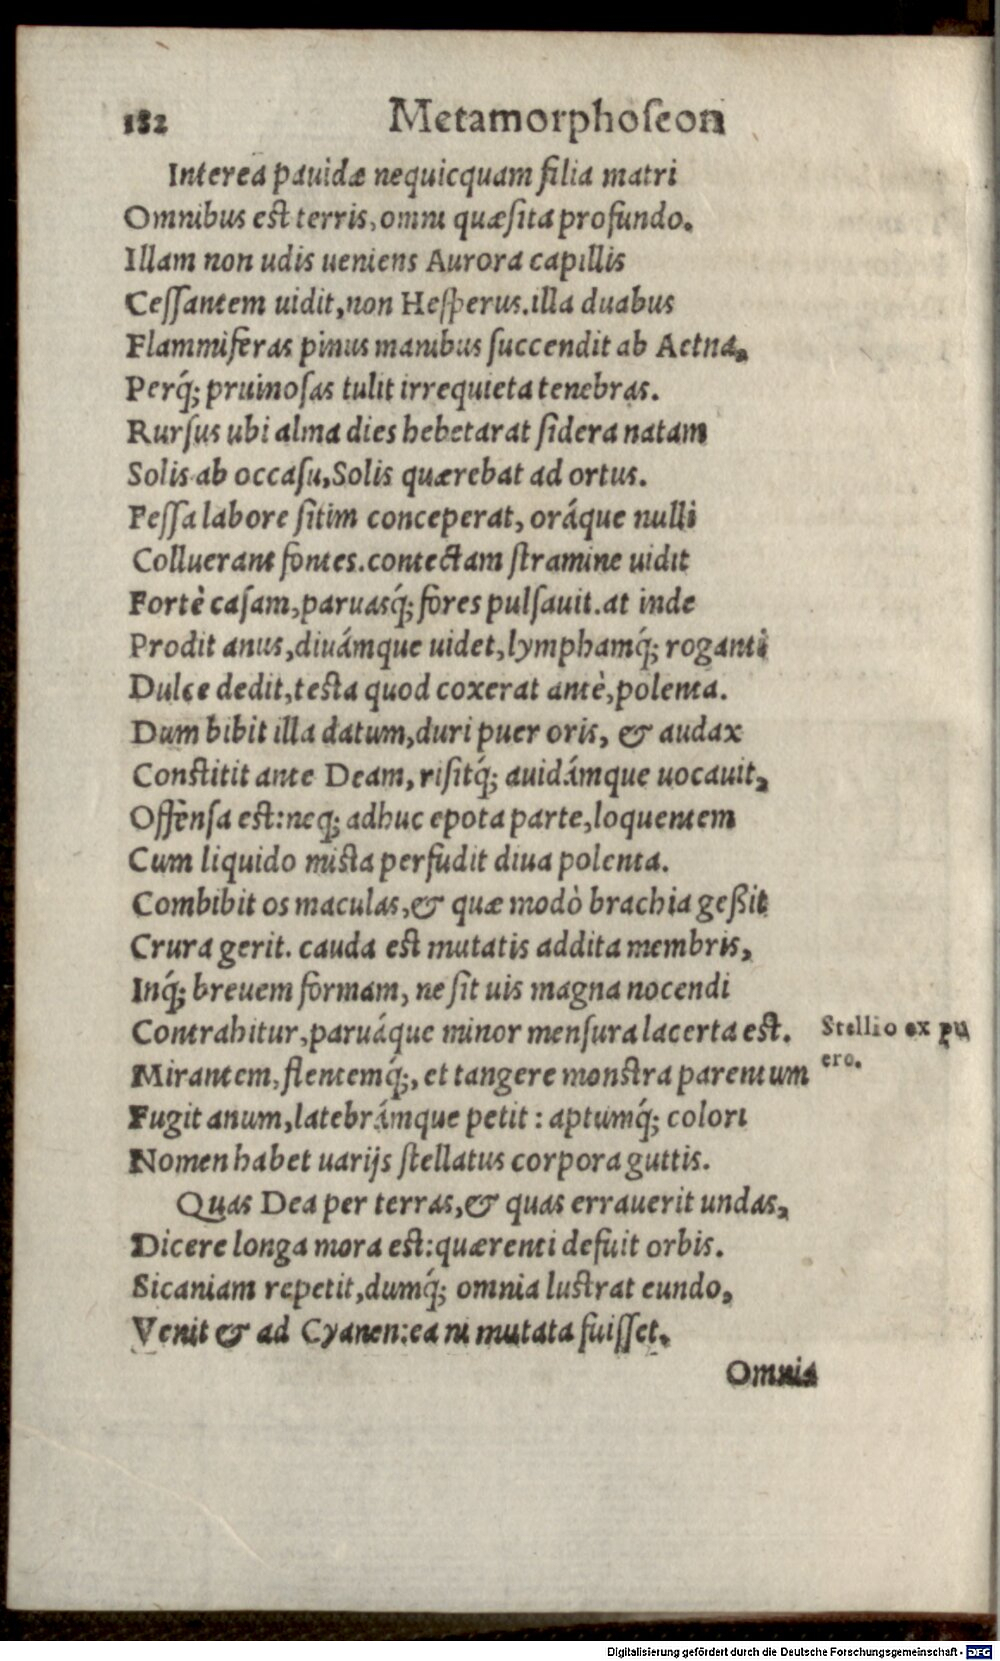 182 Metamorphoſeon
Interea pauidæ nequicquam filia matri
Omnibus est terris, omni quæſita profundo.
Illam non udis ueniens Aurora capillis
Ceſſantem uidit, non Heſperus. illa duabus
Flammiferas pinus manibus ſuccendit ab Aetna,
Perq́; pruinoſas tulit irrequieta tenebras.
Rurſus ubi alma dies hebetarat ſidera natam
Solis ab occaſu, Solis quærebat ad ortus.
Feſſa labore ſitim conceperat, oráque nulli
Colluerant fontes. contectam ſtramine uidit
Fortè caſam, paruasq́; fores pulſauit. at inde
Prodit anus, diuámque uidet, lymphamq́; roganti
Dulce dedit, testa quod coxerat antè, polenta.
Dum bibit illa datum, duri puer oris, & audax
Constitit ante Deam, riſitq́; auidámque uocauit,
Offenſa est: neq; adhuc epota parte, loquentem
Cum liquido mista perfudit diua polenta.
Combibit os maculas, & quæ modò brachia geßit
Crura gerit. cauda est mutatis addita membris,
Inq́; breuem formam, ne ſit uis magna nocendi
Contrahitur, paruáque minor menſura lacerta est.
Stellio ex pu
ero.
Mirantem, flentemq́;, et tangere monstra parentum
Fugit anum, latebrámque petit: aptumq́; colori
Nomen habet uarijs ſtellatus corpora guttis.
Quas Dea per terras, & quas errauerit undas,
Dicere longa mora est: quærenti defuit orbis.
Sicaniam repetit, dumq́; omnia lustrat eundo,
Venit & ad Cyanen: ea ni mutata fuiſſet.
Omnia
Digitalisierung gefördert durch die Deutsche Forschungsgemeinschaft - DFG